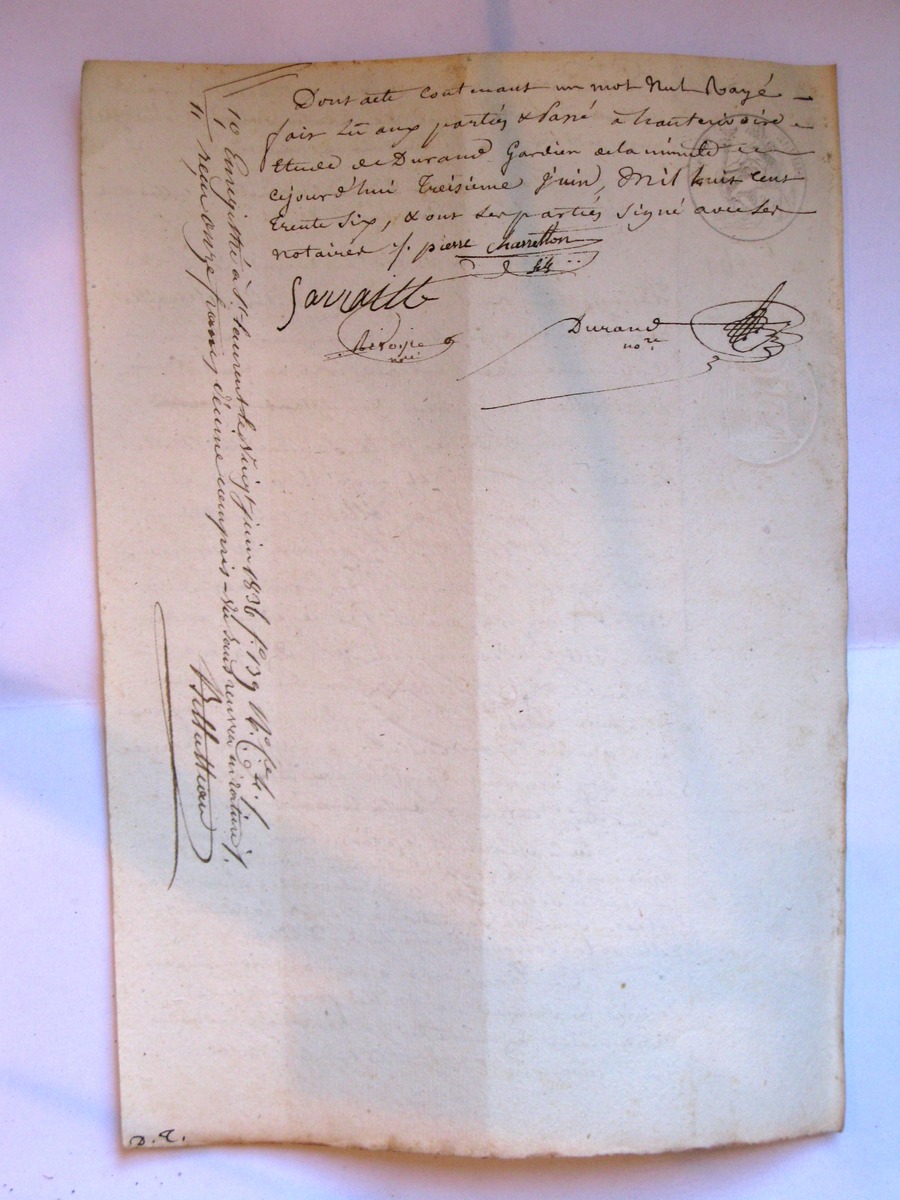 Dont acte contenant un mot Nul Rayé
fait lu aux parties & Passé à hauterivoire
Etude de Durand Gardien de la minute
cejourd'hui Treisieme Juin, Mil huit cent
trente six, & ont les parties signé avec les
notaires ./. pierre Charretton
fils
Sarrasitte
Rivoire
nre
Durand
nore
10 Enregistré à St Laurent le Vingt juin 1836 fo. 139 Ro. Ce. 4.
11 reçu onze francs décime compris
D.E.